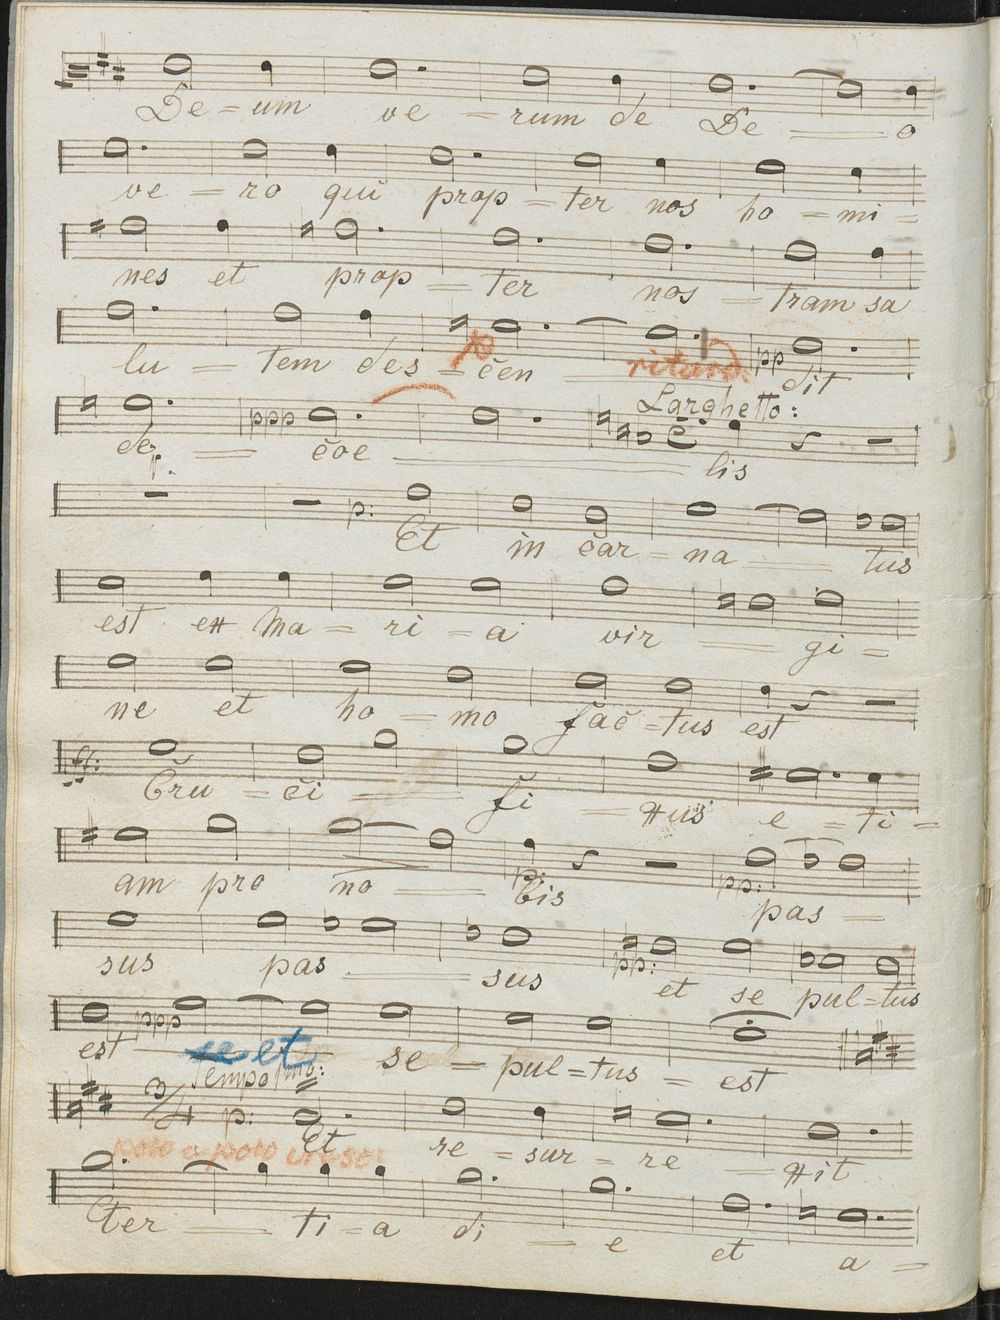 De = um ve = rum de De = o
ve = ro qui prop = ter nos ho = mi =
nes et prop = ter nos = tram sa
lu = tem des = cen dit
p ritard. pp
Larghetto:
de = coe lis
ppp
p.
p: Et in car = na = tus
est ex Ma = ri = a vir gi =
ne et ho = mo fac = tus est
ff: Cru = ci = fi = xus e = ti =
am pro no = bis pas =
p: pp:
sus pas = sus et se pul = tus
pp:
est se = pul = tus = est
ppp et
Tempo Imo:
3/4 p: Et re = sur = re = xit
poco a poco cresc:
ter = ti = a di = e et a =